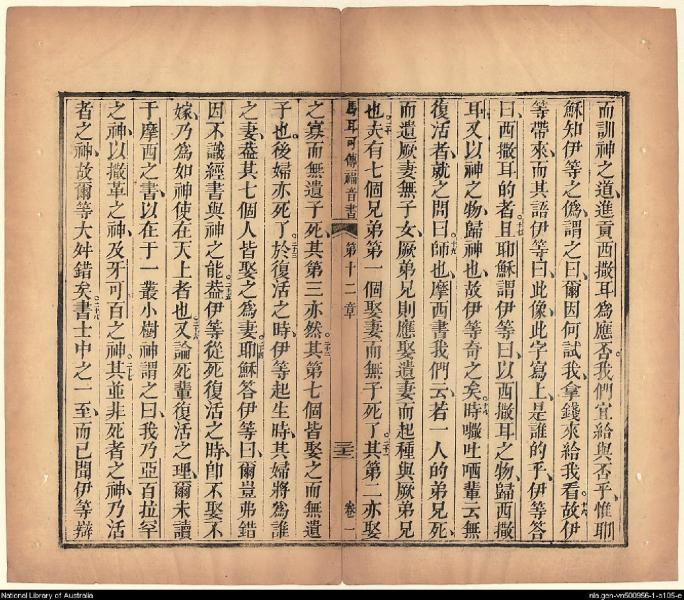 而訓神之道進貢西撒耳為應否我們宜給與否乎惟耶
穌知伊等之偽謂之曰爾因何試我拿錢來給我看故伊
等帶來而其語伊等曰此像此字寫上是誰的乎伊等答
曰西撒耳的者且耶穌謂伊等曰以西撒耳之物歸西撒
耳又以神之物歸神也故伊等奇之矣時𠿕吐哂輩云無
復活者就之問曰師也摩西書我們云若一人的弟兄死
而遺厥妻無子女厥弟兄則應娶遺妻而起種與厥弟兄
也夫有七個兄弟第一個娶妻而無子死了其第二亦娶
馬耳可傳福音書 第十二章 卷一
之寡而無遺子死其第三亦然其第七個皆娶之而無遺
子也後婦亦死了於復活之時伊等起生時其婦將為誰
之妻蓋其七個人皆娶之為妻耶穌答伊等曰爾豈弗錯
因不識經書與神之能蓋伊等從死復活之時卽不娶不
嫁乃為如神使在天上者也又論死輩復活之理爾未讀
于摩西之書以在于一叢小樹神謂之曰我乃亞百拉罕
之神以撒革之神及牙可百之神其並非死者之神乃活
者之神故爾等大舛錯矣書士中之一至而已聞伊等辯
National Library of Australia
nla.gen-vn500956-1-s105-e